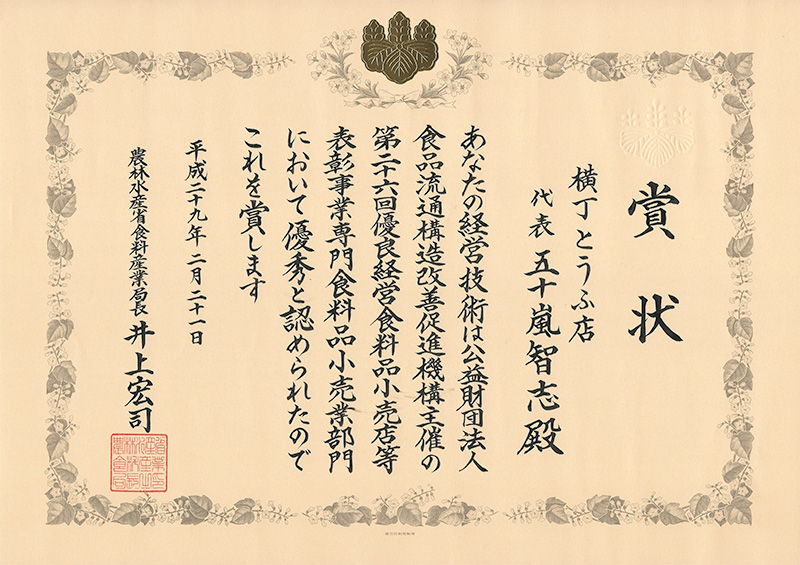 賞状
横丁とうふ店
代表 五十嵐智志殿
あなたの経営技術は公益財団法人
食品流通構造改善促進機構主催の
第二十六回優良経営食料品小売店等
表彰事業専門食料品小売業部門
において優秀と認められたので
これを賞します
平成二十九年二月二十一日
農林水産省食料産業局長 井上宏司